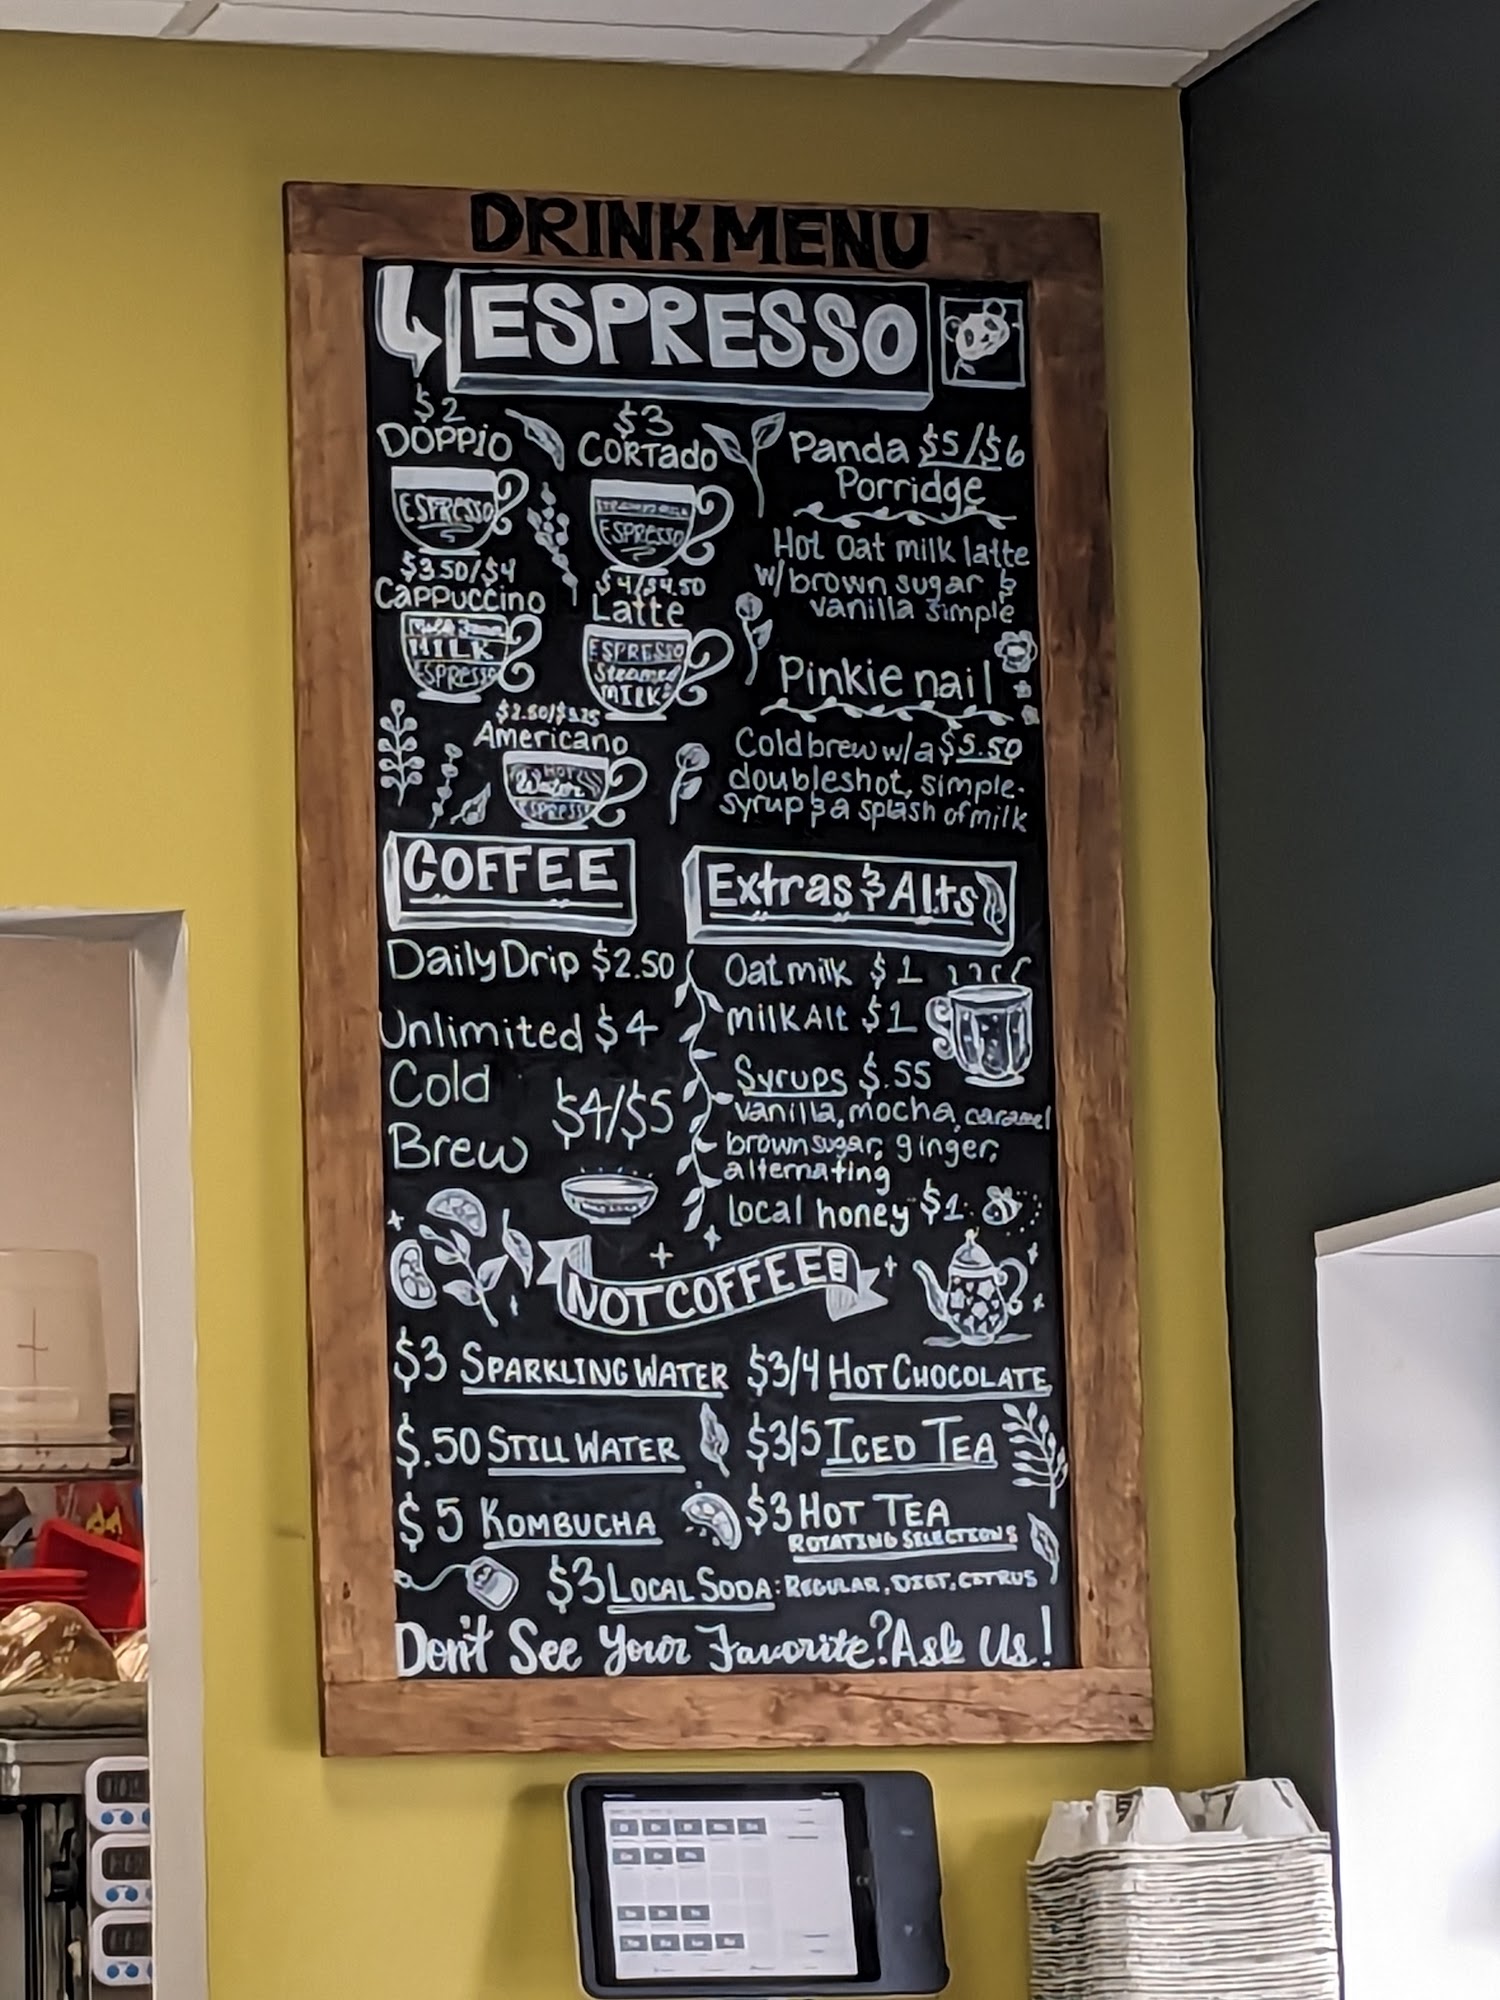 DRINK MENU
ESPRESSO
$2
DOPPIO
ESPRESSO
$3
CORTADO
ESPRESSO
$3.50/$4
CAPPUCCINO
MILK
ESPRESSO
$4/$4.50
Latte
ESPRESSO
Steamed
MILK
Americano
HOT
Water
ESPRESSO
Panda $5/$6
Porridge
Hot Oat milk latte
w/brown sugar &
vanilla simple
Pinkie nail
Cold brew w/a $5.50
doubleshot, simple-
syrup & a splash of milk
COFFEE
Daily Drip $2.50
Unlimited $4
Cold
Brew $4/$5
Extras & Alts
Oat milk $1
milk Alt $1
Syrups $.55
vanilla, mocha, caramel
brown sugar, ginger,
alternating
local honey $1
NOT COFFEE
$3 SPARKLING WATER
$.50 STILL WATER
$5 KOMBUCHA
$3/4 HOT CHOCOLATE
$3/5 ICED TEA
$3 HOT TEA
ROTATING SELECTIONS
$3 LOCAL SODA: REGULAR, DIET, CITRUS
Don't See Your Favorite? Ask Us!